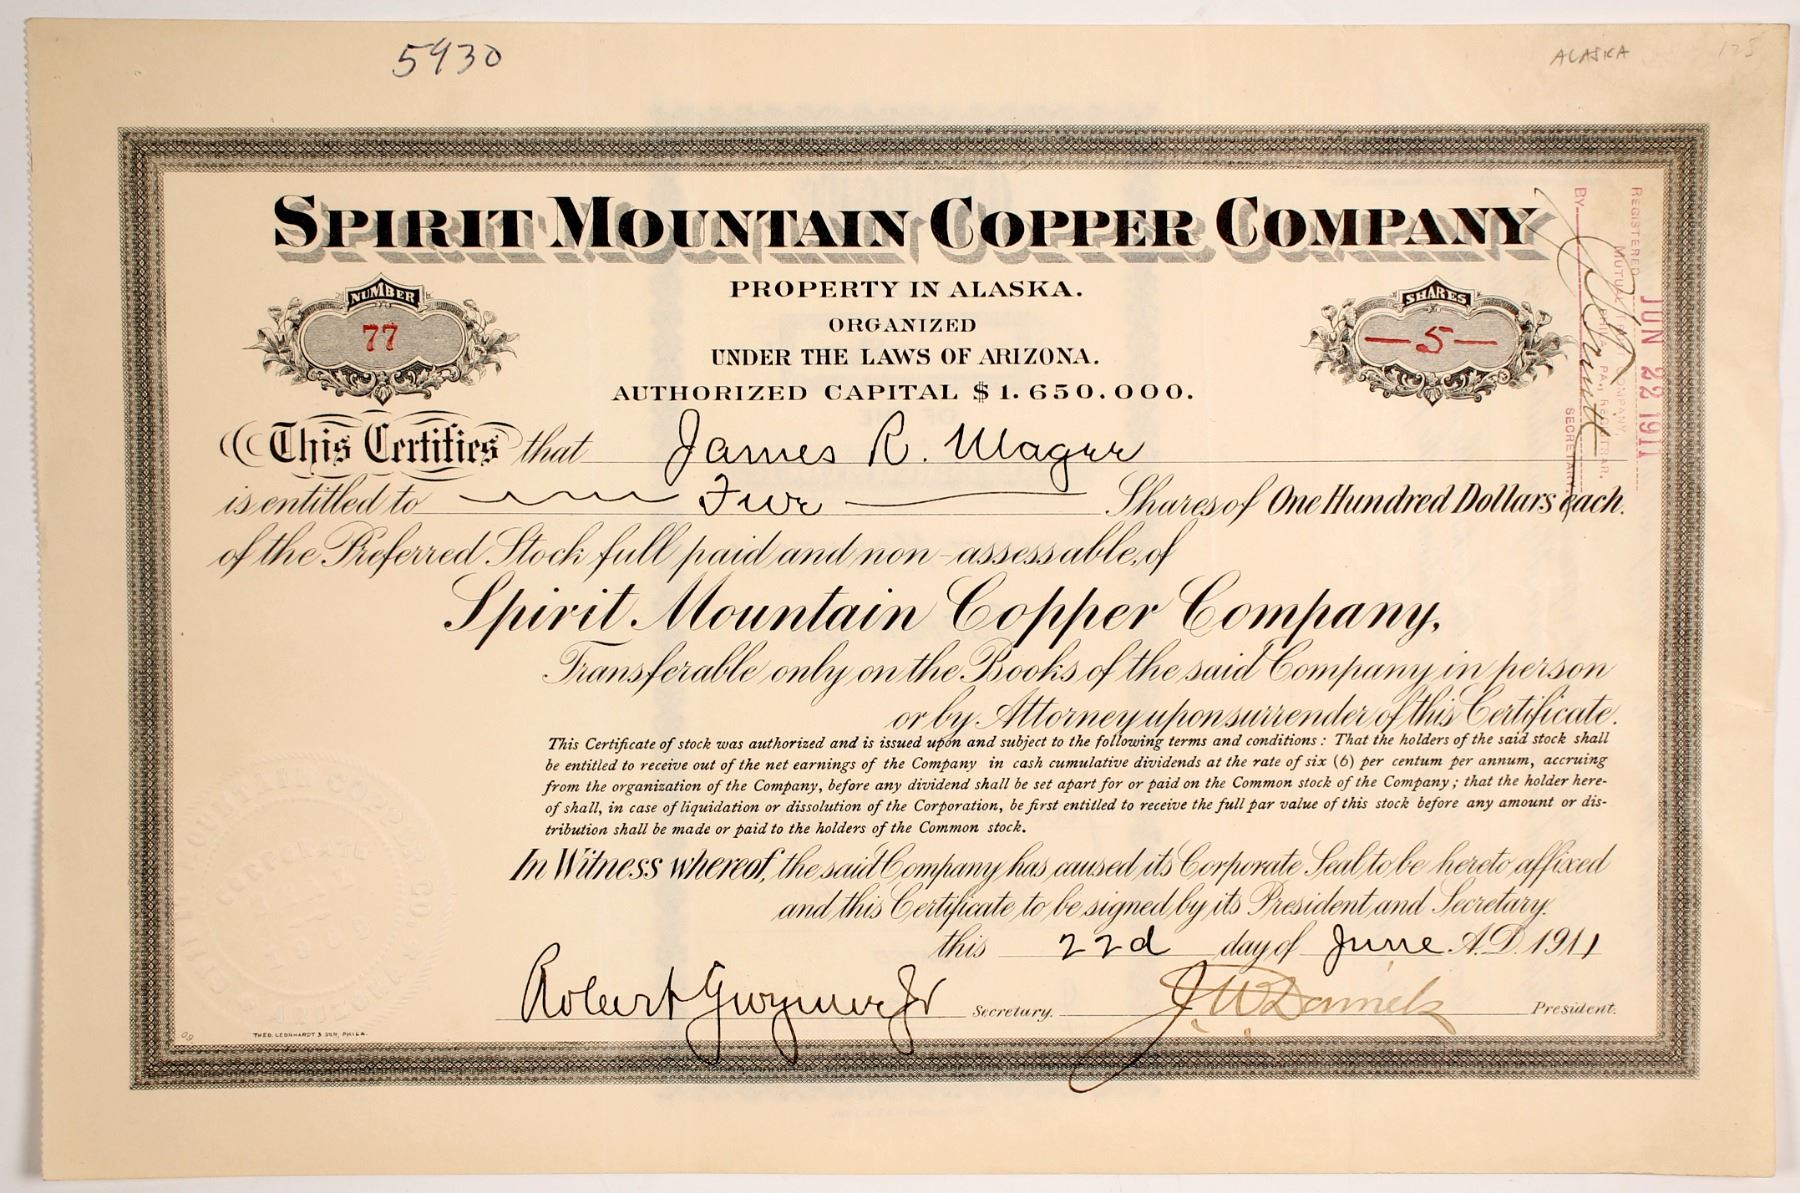 5930
ALASKA
125
SPIRIT MOUNTAIN COPPER COMPANY
PROPERTY IN ALASKA.
ORGANIZED
UNDER THE LAWS OF ARIZONA.
AUTHORIZED CAPITAL $1.650.000.
NUMBER
77
SHARES
—5—
This Certifies that James R. Mager
is entitled to Five Shares of One Hundred Dollars each.
of the Preferred Stock full paid and non-assessable, of
Spirit Mountain Copper Company,
Transferable only on the Books of the said Company in person
or by Attorney upon surrender of this Certificate.
This Certificate of stock was authorized and is issued upon and subject to the following terms and conditions: That the holders of the said stock shall
be entitled to receive out of the net earnings of the Company in cash cumulative dividends at the rate of six (6) per centum per annum, accruing
from the organization of the Company, before any dividend shall be set apart for or paid on the Common stock of the Company; that the holder here-
of shall, in case of liquidation or dissolution of the Corporation, be first entitled to receive the full par value of this stock before any amount or dis-
tribution shall be made or paid to the holders of the Common stock.
In Witness whereof, the said Company has caused its Corporate Seal to be hereto affixed
and this Certificate to be signed by its President and Secretary.
this 22d day of June A.D. 1911
Robert Gwynne Jr Secretary. J. W. Daniels President.
THEO. LEONHARDT & SON, PHILA.
REGISTERED
MUTUAL COMPANY,
PA., REGISTRAR.
JUN 22 1911
BY
SECRETARY
CORPORATE
ARIZONA